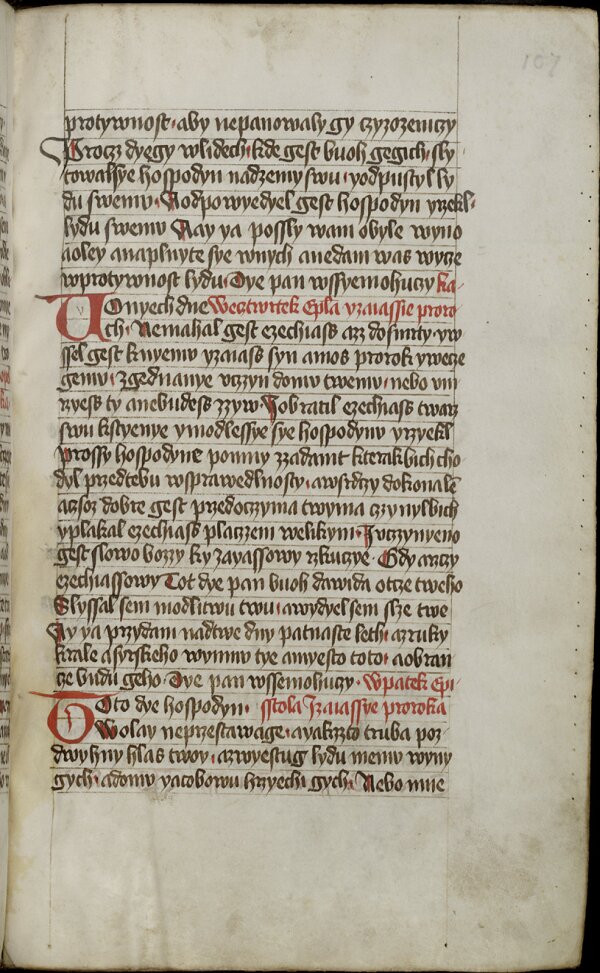 107
protywnost · aby nepanowaly gy czyzozemczy
Procz dyegy wlidech · kde gest buoh gegich · sly
towalsye hospodyn nadzemy swu · yodpustyl ly
du swemu · Aodpowyedyel gest hospodyn yrzekl ·
lydu swemu Aay ya possly wam obyle wyno
aoley anaplnyte sye wnych anedam was wyecze
wprotywnost lydu · Dye pan wssyemohuczy ka-
UOnyech dne Wecztwrtek Epla yzaiassie proro
ch · Nemahal gest ezechiass azz dosmrty · yw
ssel gest knyemu yzaiass syn amos prorok ywecze
gemu · zgednanye vczyn domu twemu · nebo vm
rzyess ty anebudess zzyw · Yobratil ezechiass twarz
swu kstyenye ymodlesse sye hospodynu yrzyekl
prossy hospodyne pomny zzadamt kterakbich cho
dyl przedtebu wsprawedlnosty · awsrdczy dokonale
aczsoz dobre gest przedoczyma twyma czynylbich
yplakal ezechiass placzem welikym · Iuczynyeno
gest slowo bozzy ky zayassowy rzkucze · Gdy arzczy
ezechiassowy Tot dye pan buoh dawida otcze tweho
Slyssal sem modlitwu twu · awydyel sem slze twe
Ay ya przydam nadtwe dny patnaste leth · azruky
krale asyrskeho wymmu tye amyesto toto · aobran
cze budu geho · Dye pan wssemohuczy · Wpatek Epi
TOto dye hospodyn · sstola Izaiassye proroka
Wolay neprzestawage · ayakzzto truba poz
dwyhny hlas twoy · azwyestug lydu memu wyny
gych · adomu yacobowu hrzyechi gych · Nebo mne